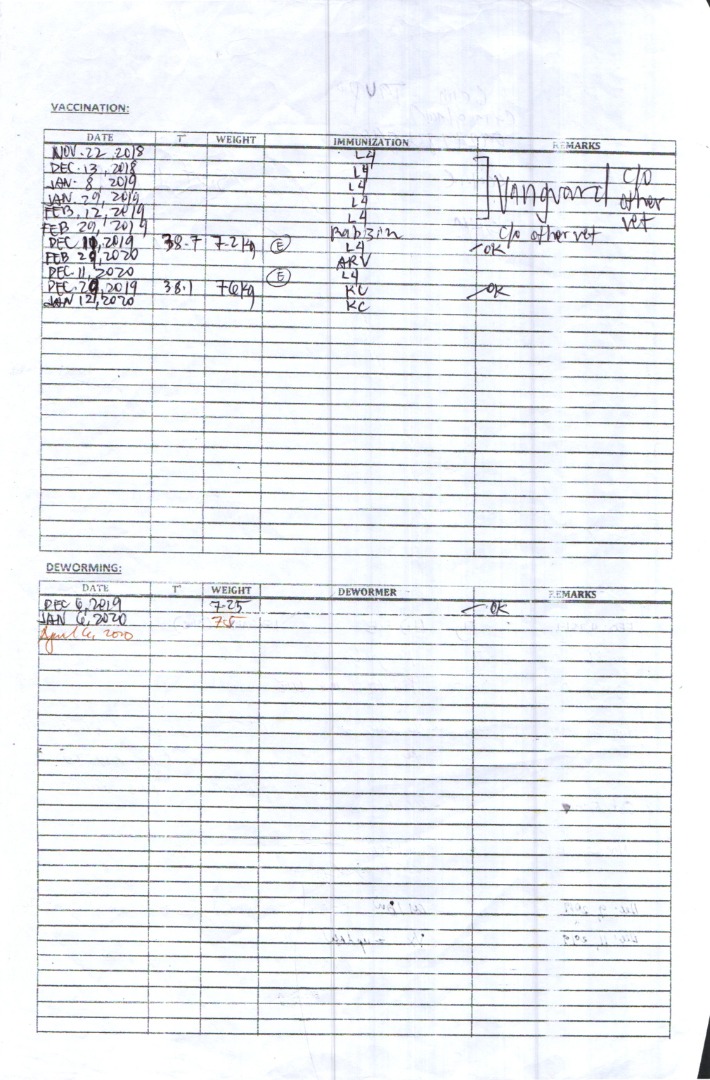 VACCINATION:
DATE T° WEIGHT IMMUNIZATION REMARKS
NOV. 22, 2018 L4
DEC. 13, 2018 L4
JAN. 8, 2019 L4
JAN. 29, 2019 L4
FEB. 12, 2019 L4
Vanguard c/o other vet
FEB 20, 2019 Rabzin c/o other vet
DEC 10, 2019 38.7 7.2 kg E L4 OK
FEB 20, 2020 ARV
DEC. 11, 2020 E L4
DEC. 20, 2019 38.1 7.6 kg KC OK
JAN 12, 2020 KC
DEWORMING:
DATE T° WEIGHT DEWORMER REMARKS
DEC 6, 2019 7.25 OK
JAN 6, 2020
April 6, 2020